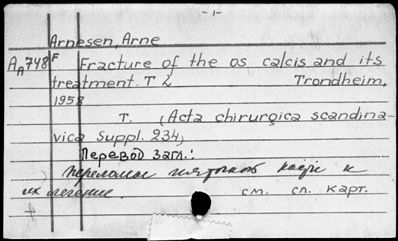 -1-
Arnesen, Arne
AA748 F Fracture of the os calcis and its
treatment. T 2 Trondheim,
1958
T. (Acta chirurgica scandina-
vica Suppl. 234)
Перевод загл.:
Переломы костей и
их лечение. см. сл. карт.